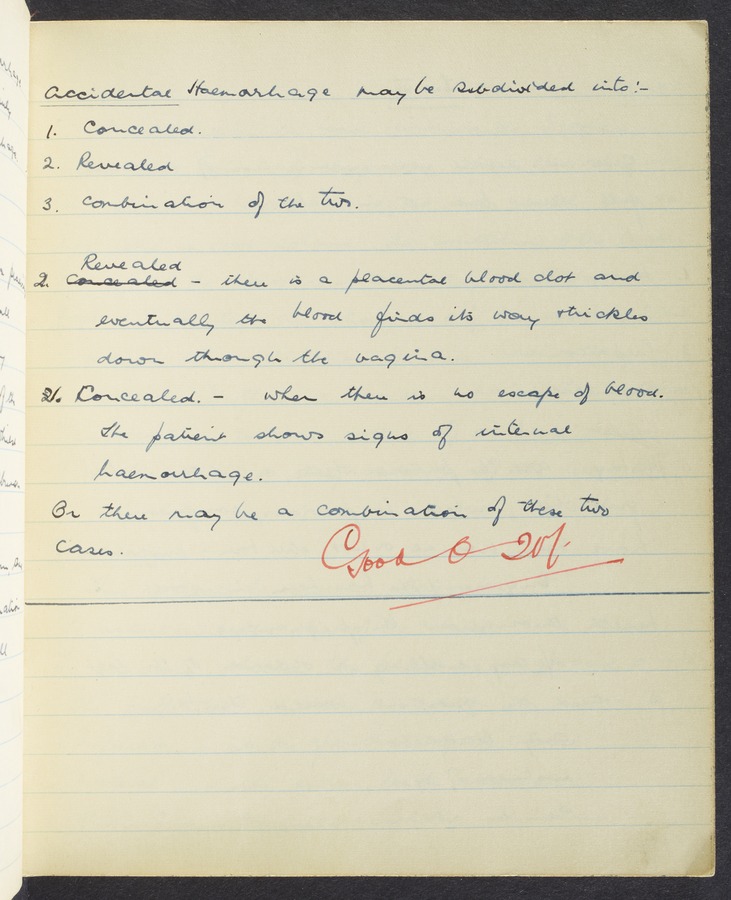 Accidental Haemorrhage may be subdivided into:-
1. Concealed.
2. Revealed
3. Combination of the two.
Revealed
2. Concealed - there is a placental blood clot and
eventually the blood finds its way & trickles
down through the vagina.
1. Concealed. - when there is no escape of blood.
The patient shows signs of internal
haemorrhage.
Or there may be a combination of these two
cases.
Good